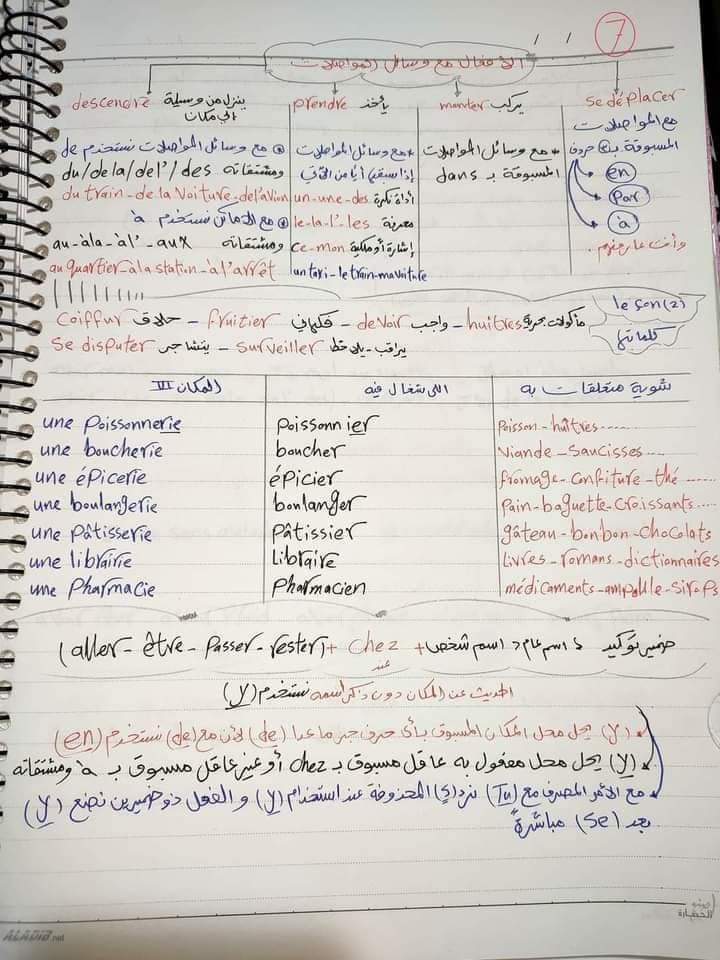 7
/ /
الأفعال مع وسائل المواصلات
se déplacer
مع المواصلات
المسبوقة بـ3 حروف
en
par
à
وأنت عارفهم.
monter يركب
* مع وسائل المواصلات
المسبوقة بـ dans
prendre يأخذ
* مع وسائل المواصلات
إذا سبقهم أيا من الآتي
un-une-des أداة نكرة
le-la-l'-les معرفة
ce-mon إشارة أو ملكية
un taxi-le train-ma voiture
descendre ينزل من وسيلة
الى مكان
مع وسائل المواصلات نستخدم de
du/de la/del'/des ومشتقاته
du train-de la Voiture-de l'avion
مع الأماكن نستخدم à
au-àla-àl'-aux ومشتقاته
au quartier-à la station-à l'arrêt
le son(2)
كلماتها
huitres مأكولات بحرية - devoir واجب - fruitier فكهاني - Coiffur حلاق
Surveiller يراقب-يلاحظ - Se disputer يتشاجر
شوية متعلقات به
اللى شغال فيه
المكان
une Poissonnerie Poissonnier Poisson-huîtres.....
une boucherie boucher Viande-Saucisses....
une éPicerie éPicier fromage-confiture-thé......
une boulangerie boulanger Pain-baguette-croissants....
une Pâtisserie Pâtissier gâteau-bonbon-chocolats
une librairie Libraire Livres-romans-dictionnaires
une Pharmacie Pharmacien médicaments-ampoule-sirops
(aller-être-Passer-rester) + chez + اسم شخص > اسم عام > ضمير توكيد
عند
الحديث عن المكان دون ذكر اسمه نستخدم (y)
* (y) يحل محل المكان المسبوق بأى حرف جر ما عدا (de) لأن مع (de) نستخدم (en)
* (y) يحل محل مفعول به عاقل مسبوق بـ chez أو غير عاقل مسبوق بـ à ومشتقاته
* مع الأمر المصرف مع (Tu) نرد (s) المحذوفة عند استخدام (y) و الفعل ذو ضميرين نضع (y)
بعد (Se) مباشرةً
ALADIB.net